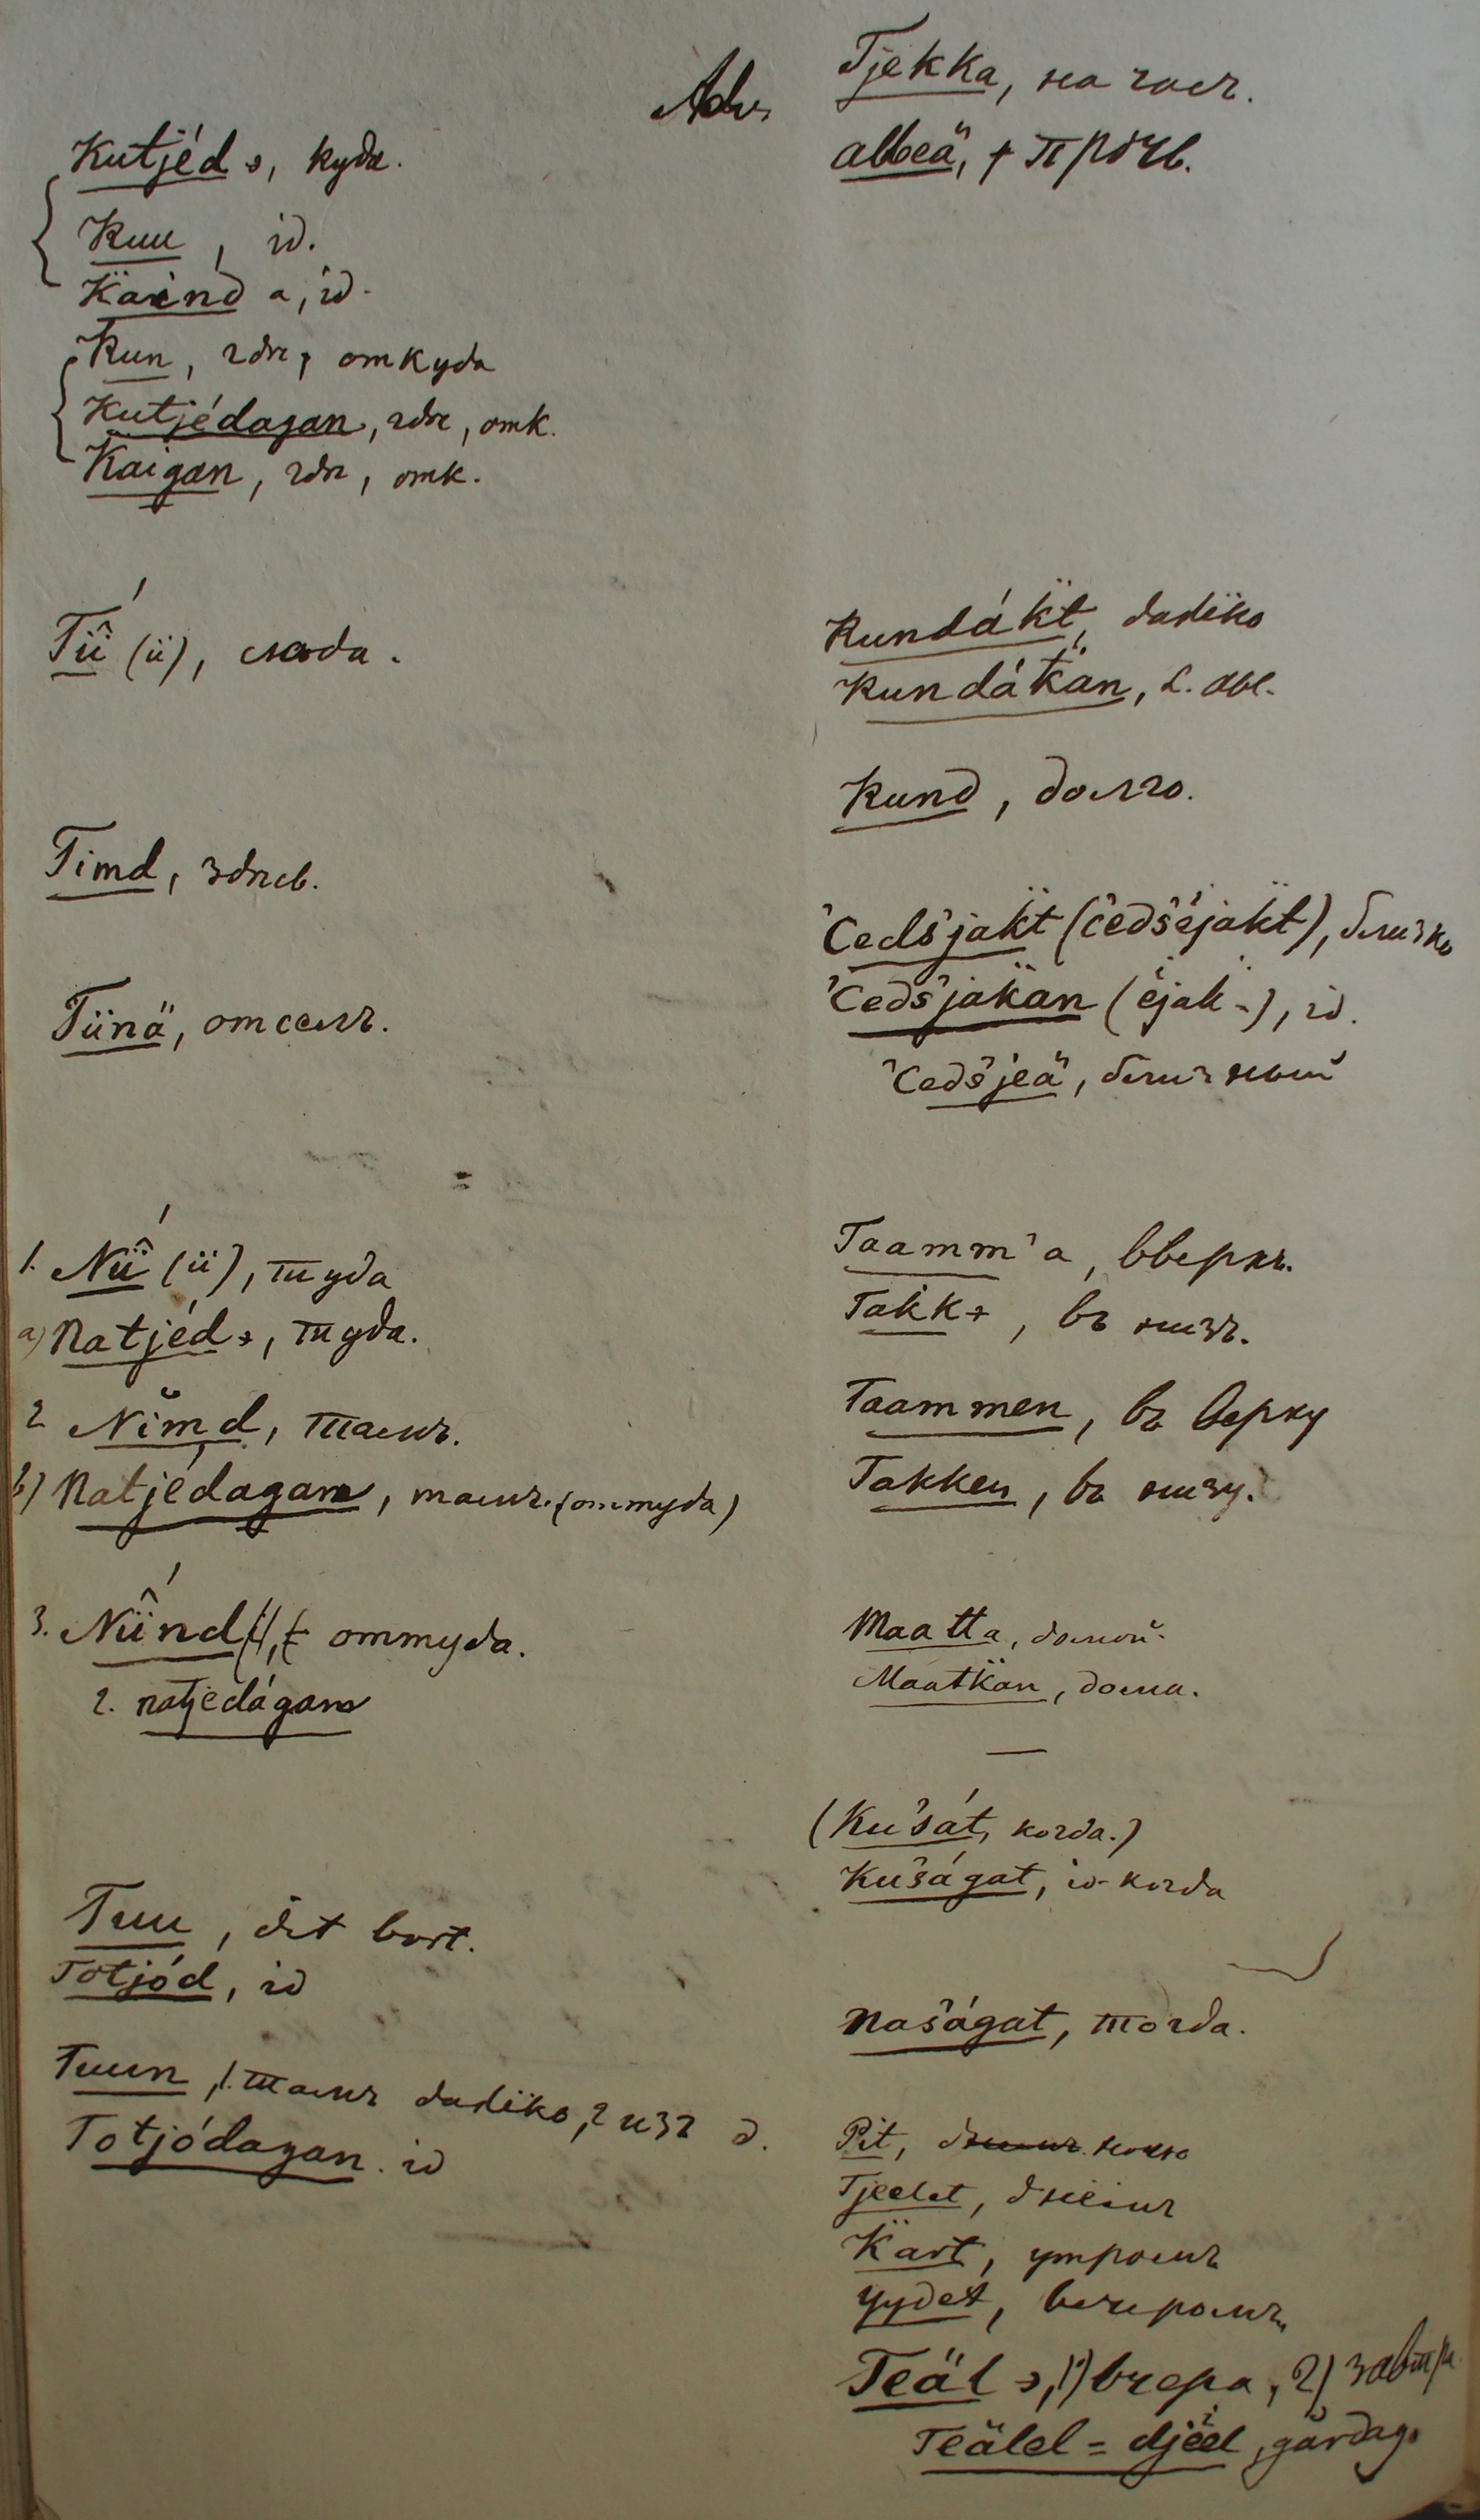 Adv.
Kutjéd ɜ, куда.
Kuu, id.
Kaind a, id.
Kun, гдѣ, откуда
Kutjédagan, гдѣ, отк.
Kaigan, гдѣ, отк.
Tiî (ii), сюда.
Timd, здѣсь.
Tiinä, отселѣ.
1. Niî (ii), туда
a) Natjéd ɜ, туда.
2 Nimd, тамъ.
b) Natjédagan, тамъ. (оттуда)
3. Niînd оттуда.
2. natjedágan
Tuu, dit bort.
Totjód, id
Tuun, 1. тамъ далёко, 2 изъ д.
Totjódagan. id
Tjekka, на
albeä, прочь.
Kundák̈t, далёко
Kundák̈an, L. Abl.
Kund, долго.
Čedšjak̈t (čedšėjak̈t), близко
Čedšjak̈an (ėjak-), id.
Čedšjeä, ближній
Taamm'a, вверхъ.
Takkɜ, въ низъ.
Taammen, въ верху
Takken, въ низу.
Maatta, домой.
Maatk̈an, дома.
(Kušát, когда.)
Kušágat, id- когда
našágat, тогда.
Pit,
Tjeelet, днёмъ
K̈art, утромъ
Yydet, вечеромъ
Teäl ɜ, 1) вчера, 2) завтра
Teälel = djeel, gårdag.